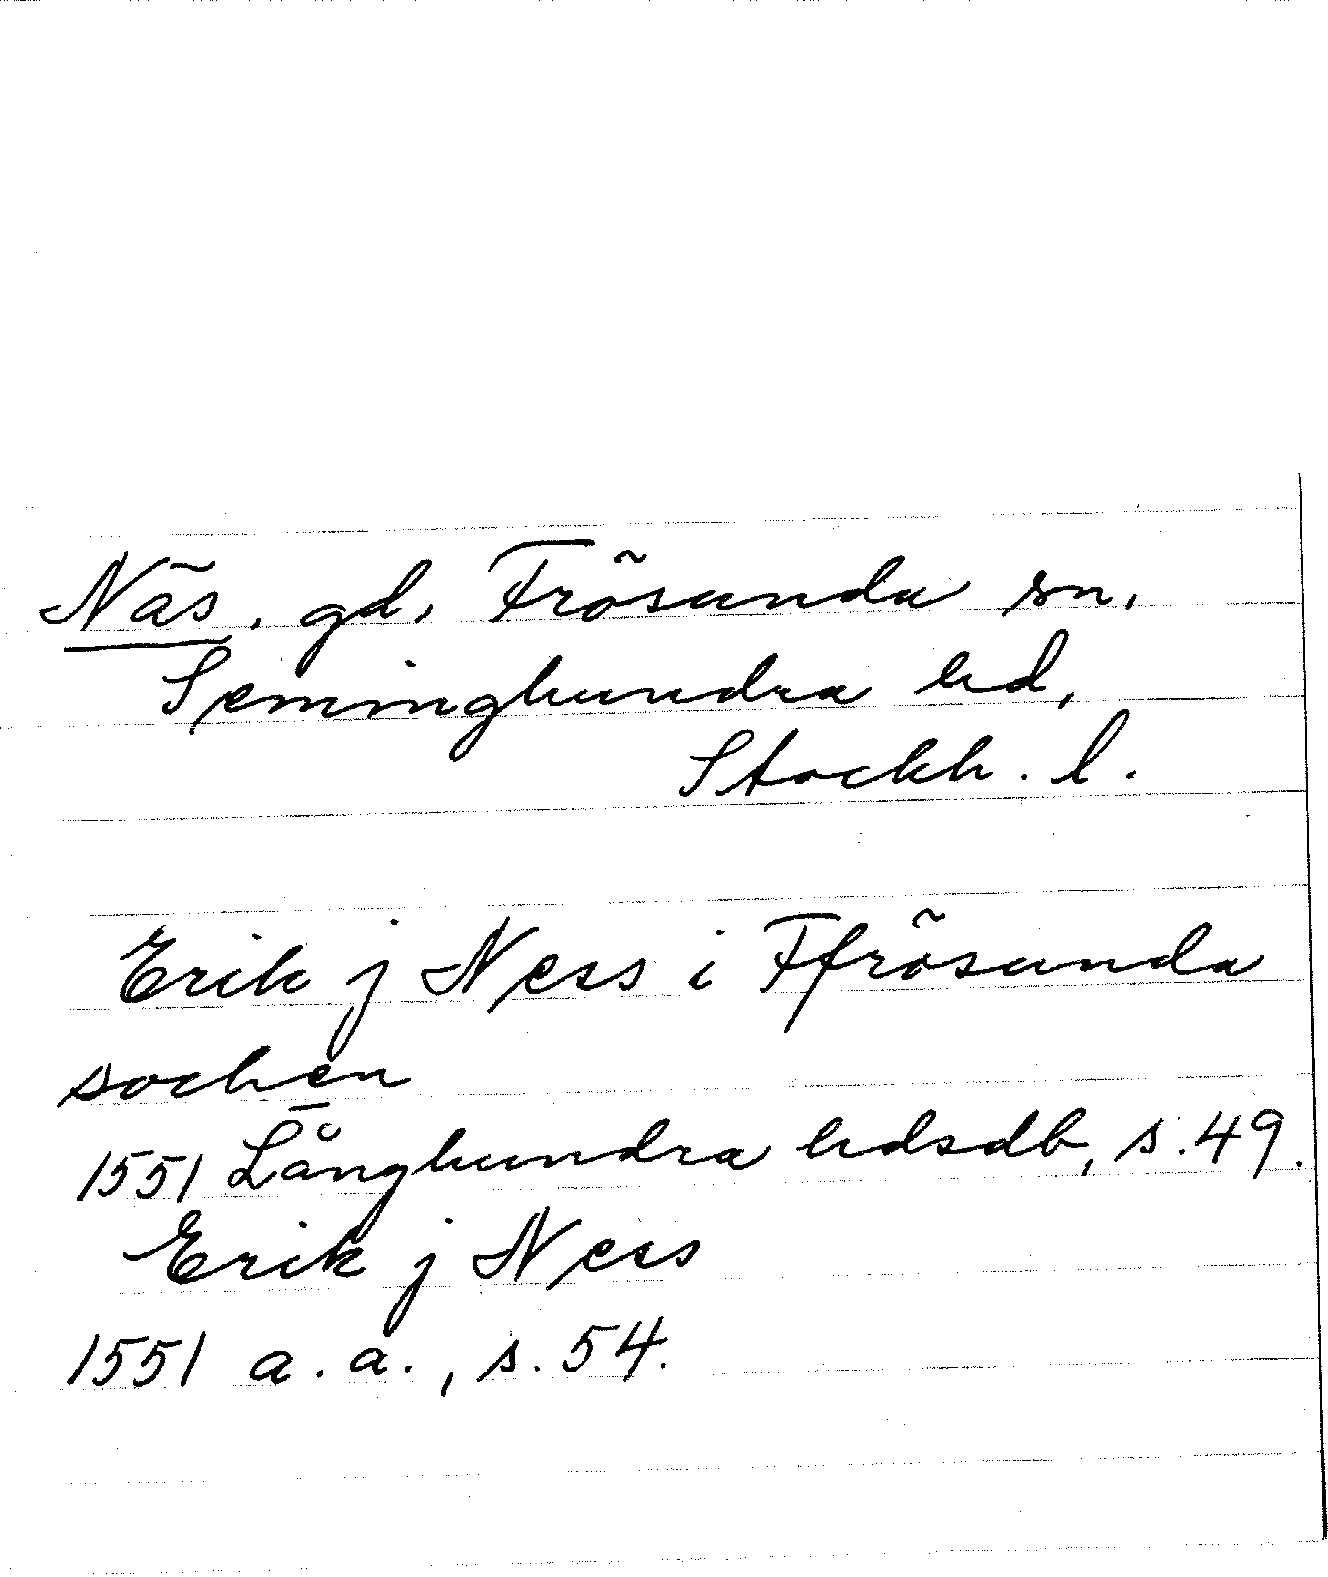 Näs, gd, Frösunda sn,
Seminghundra hd,
Stockh. l.
Erik j Ness i Ffrösunda
sochen
1551 Långhundra hdsdb, s. 49.
Erik j Ness
1551 a. a., s. 54.